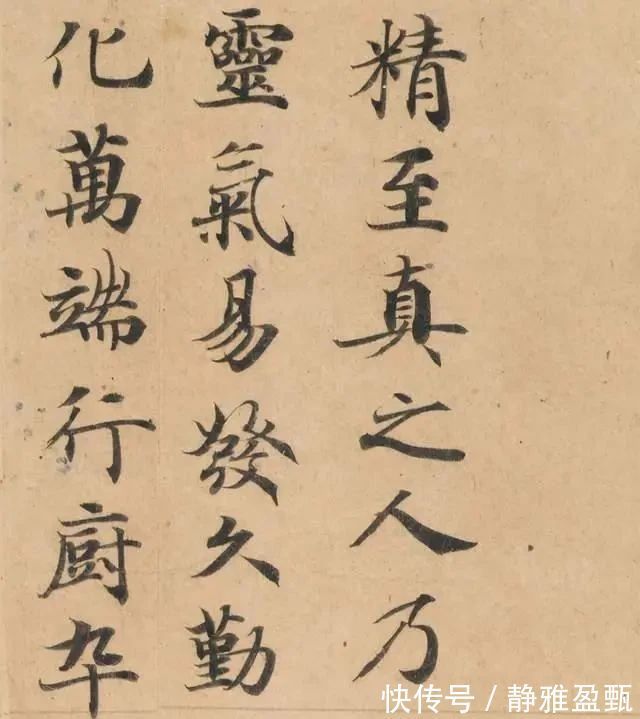 精至真之人乃
靈氣易發久勤
化萬端行廚卒
快传号／静雅盈甄